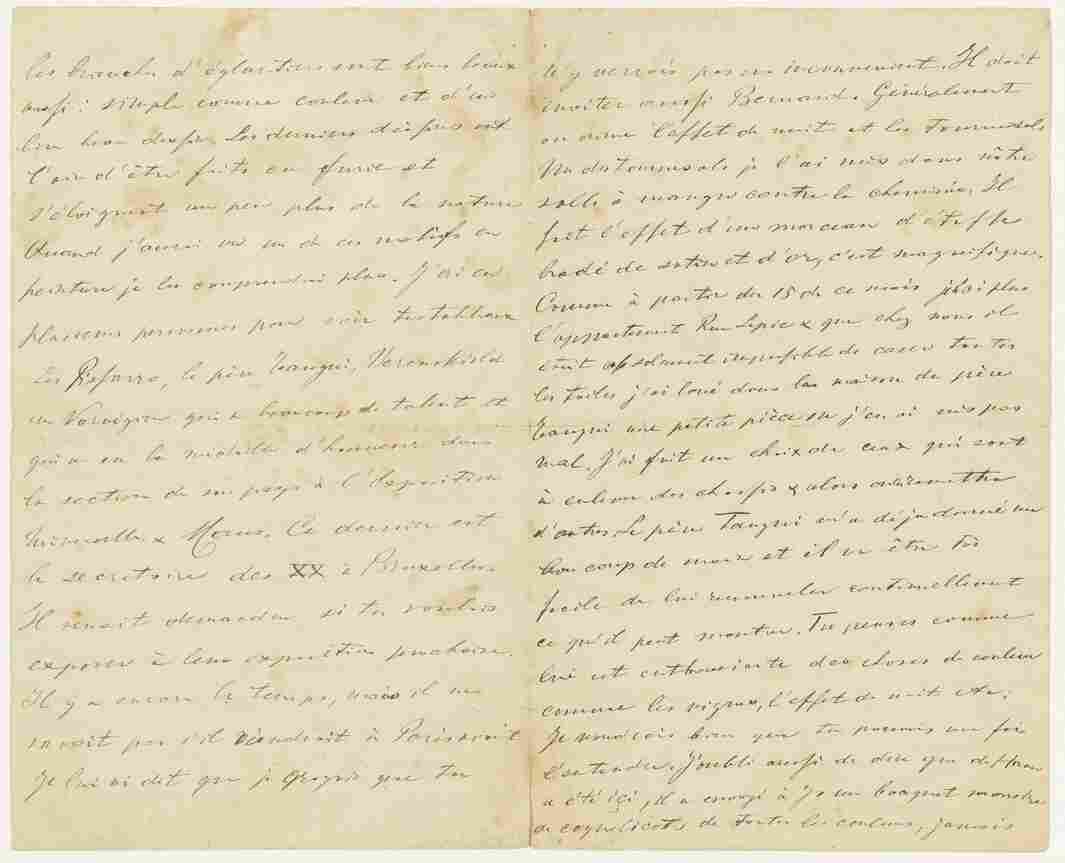 les branches d'églantiers sont bien beaux
aussi: simple comme couleur et d'un
bien beau dessin. Les derniers dessins ont
l'air d'être faits en furie et
s'éloignent un peu plus de la nature
Quand j'aurai vu un de ces motifs en
peinture je les comprendrai plus. J'ai eu
plusieurs personnes pour voir tes tableaux
les Pissarro, le père Tangui, Verenskiold
un Norvégien qui a beaucoup de talent et
qui a eu la médaille d'honneur dans
la section de son pays à l'Exposition
Universelle & Maus. Ce dernier est
le secretaire des XX à Bruxelles.
Il venait demander si tu voulais
exposer à leur exposition prochaine.
Il y a encore le temps, mais il ne
savait pas s'il viendrait à Paris avant
Je lui ai dit que je croyais que tu
n'y verrais pas un inconvenient. Il doit
inviter aussi Bernard. Généralement
on aime l'effet de nuit et les Tournesols
Un des tournesols je l'ai mis dans nôtre
salle à manger contre la cheminée. Il
fait l'effet d'un morceau d'étoffe
brodé de satin et d'or, c'est magnifique.
Comme à partir du 15 de ce mois je n'ai plus
l'appartement Rue Lepic & que chez nous il
était absolument impossible de caser toutes
les toiles j'ai loué dans la maison du père
Tangui une petite pièce où j'en ai mis pas
mal. J'ai fait un choix de ceux qui sont
à enlever des chassis & alors on remettra
d'autres. Le père Tangui m'a déja donné un
beau coup de main et il va être très
facile de lui renouveler continuellement
ce qu'il peut montrer. Tu penses comme
lui est enthousiaste des choses de couleur
comme les vignes, l'effet de nuit etc.
Je voudrais bien que tu pouvais une fois
l'entendre. J'oubli aussi de dire que de Haan
a été içi, il a envoyé à Jo un bouquet monstre
de coquelicots de toutes les couleurs, jamais